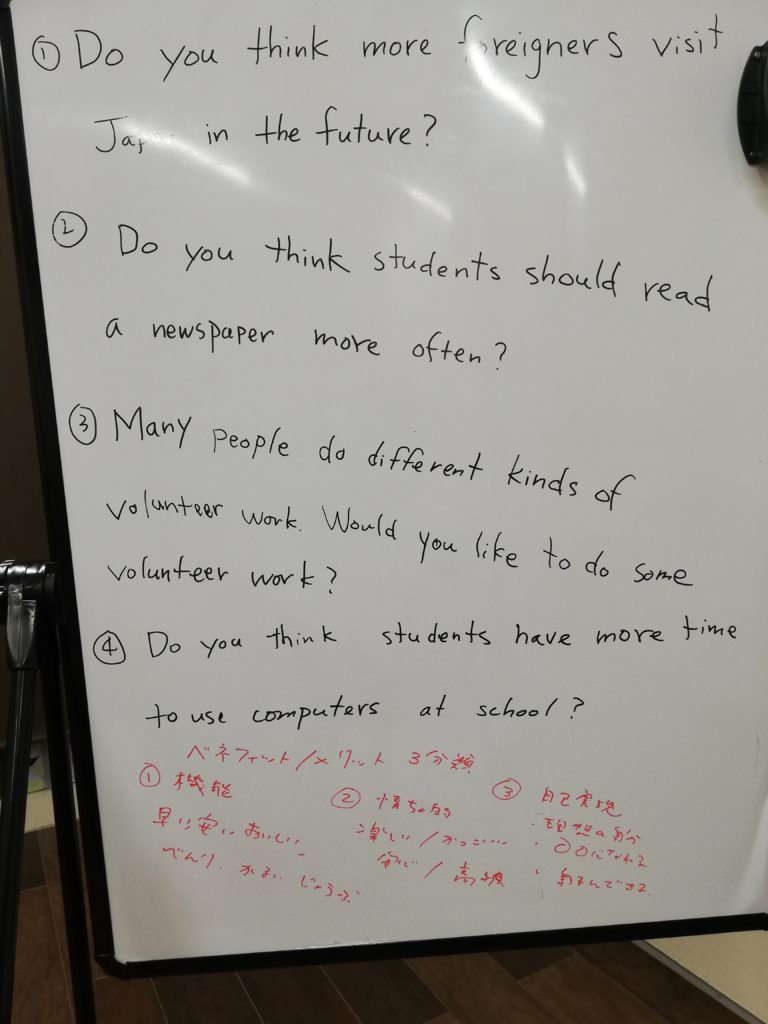 ① Do you think more foreigners visit
Japan in the future?
② Do you think students should read
a newspaper more often?
③ Many people do different kinds of
volunteer work. Would you like to do some
volunteer work?
④ Do you think students have more time
to use computers at school?
ベネフィット/メリット 3分類
① 機能
早い 安い おいしい
べんり かるい じょうぶ
② 情ちょ的
楽しい / かっこいい
安心 / 高級
③ 自己実現
・理想の自分
・〇〇になれる